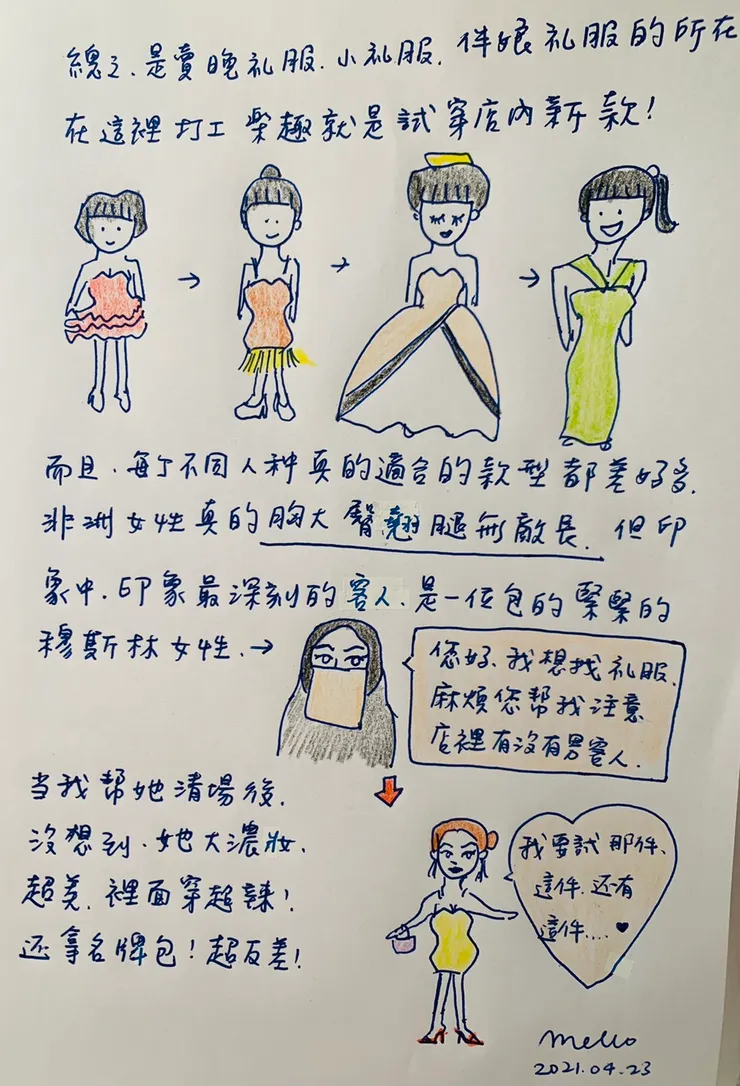 總之.是賣晚礼服.小礼服.伴娘礼服的所在
在這裡打工樂趣就是試穿店內新款!
而且.每个不同人种真的適合的款型都差好多.
非洲女性真的胸大臀翹腿無敵長.但印
象中.印象最深刻的客人.是一位包的緊緊的
穆斯林女性.→
您好.我想找礼服.
麻煩您幫我注意
店裡有沒有男客人.
当我幫她清場後.
沒想到.她大濃妝.
超美.裡面穿超辣!
还拿名牌包!超反差!
我要試那件、
這件.还有
這件....♥
mello
2021.04.23